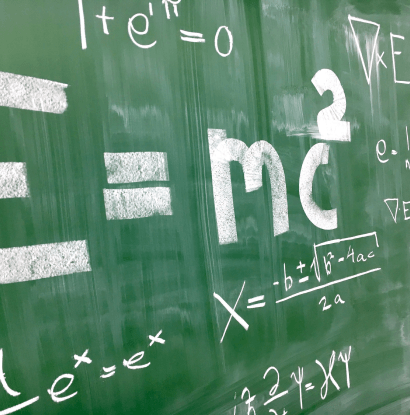 1 + e^iπ = 0
∇ × E
E = mc²
e.
∇E
X = (-b ± √(b² - 4ac)) / 2a
e^x = e^x
iħ ∂ ψ = Hψ